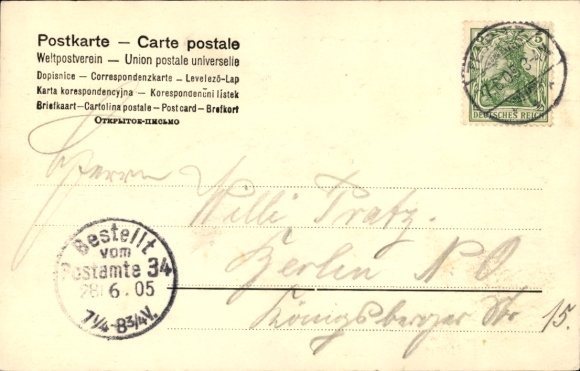 Postkarte — Carte postale
Weltpostverein — Union postale universelle
Dopisnice — Correspondenzkarte — Levelező-Lap
Karta korespondencyjna — Korespondenčni listek
Briefkaart — Cartolina postale — Postcard — Brefkort
Открытое-письмо
DEUTSCHES REICH
Herrn
Willi Pratz.
Berlin N O
Königsberger Str 15.
Bestellt
vom
Postamte 34
28 6. 05
7¼-8¾V.